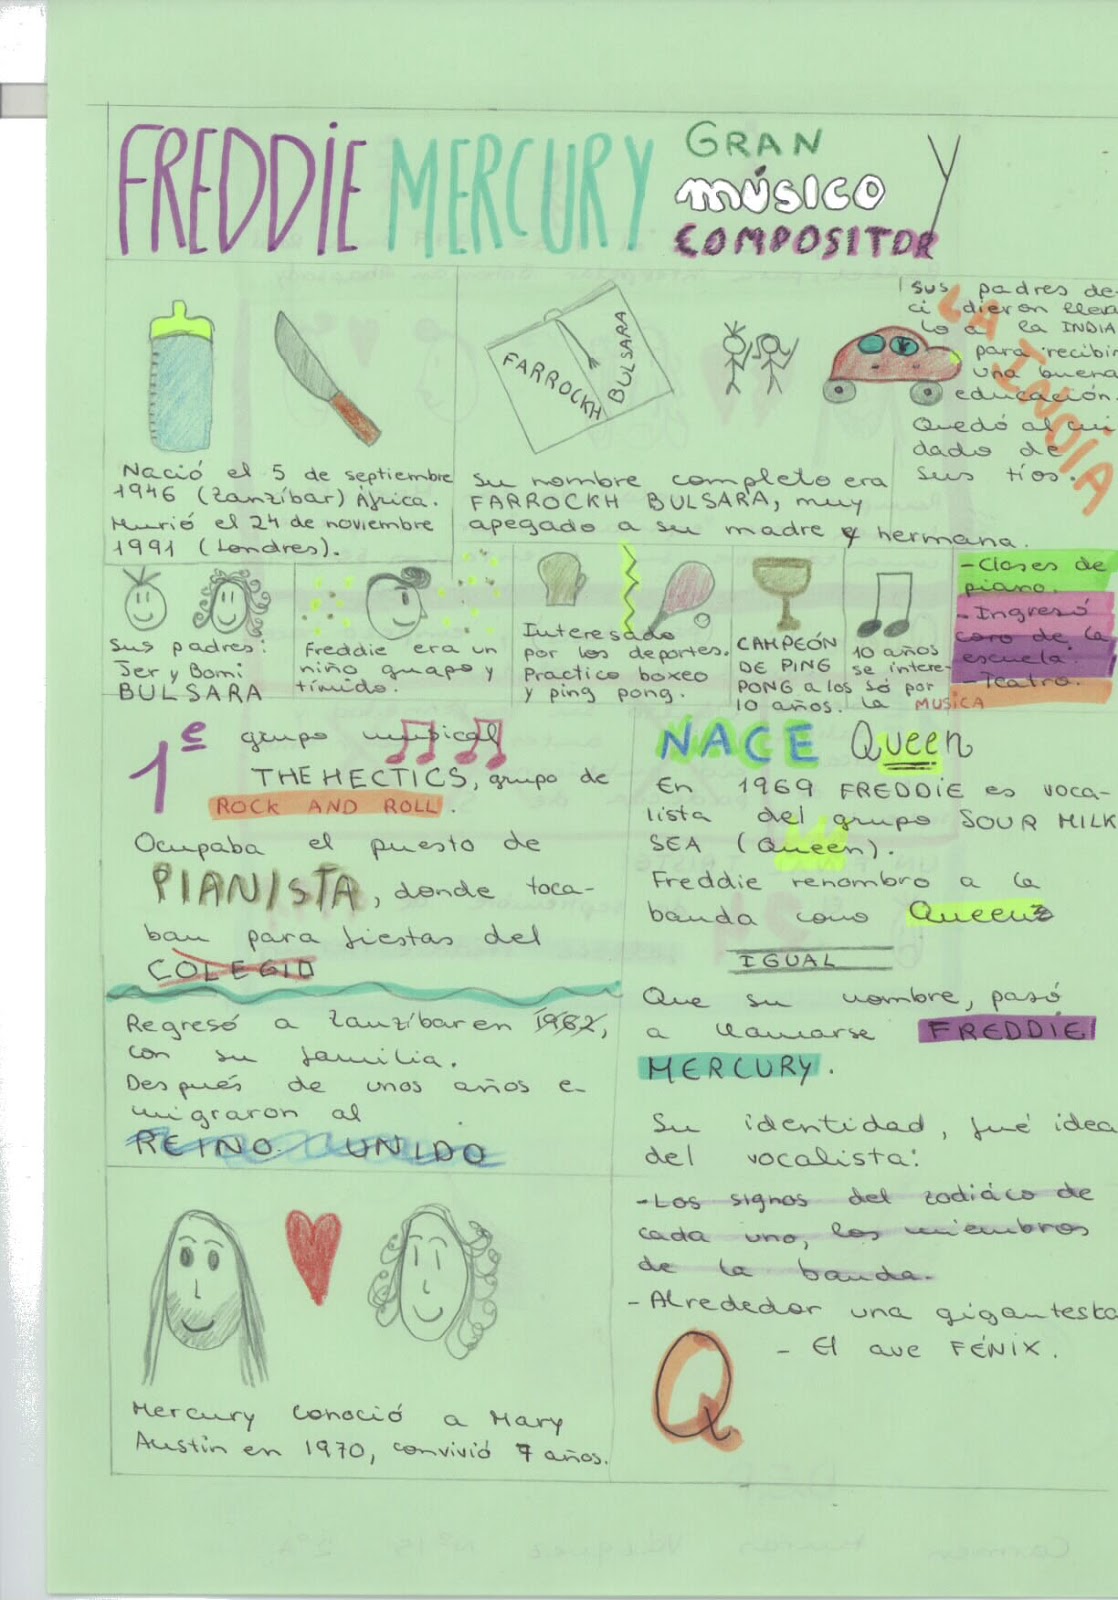 FREDDIE MERCURY GRAN
músico Y
COMPOSITOR
Nació el 5 de septiembre
1946 (Zanzíbar) África.
Murió el 24 de noviembre
1991 (Londres).
FARROCKH
BULSARA
Su nombre completo era
FARROCKH BULSARA, muy
apegado a su madre y hermana.
LA INDIA
Sus padres de-
cidieron lleva
lo a la INDIA
para recibir
una buena
educación.
Quedó al cui
dado de
sus tíos.
Sus padres:
Jer y Bomi
BULSARA
Freddie era un
niño guapo y
tímido.
Interesado
por los deportes.
Practico boxeo
y ping pong.
CAMPEÓN
DE PING
PONG a los
10 años.
10 años
se intere-
só por
la MUSICA
- Clases de
piano.
- Ingresó
coro de la
escuela.
- Teatro.
1º grupo musical
THE HECTICS, grupo de
ROCK AND ROLL.
Ocupaba el puesto de
PIANISTA, donde toca-
ban para fiestas del
COLEGIO
Regresó a Zanzíbar en 1962,
con su familia.
Después de unos años e-
migraron al
REINO UNIDO
Mercury conoció a Mary
Austin en 1970, convivió 7 años.
NACE Queen
En 1969 FREDDIE es voca-
lista del grupo SOUR MILK
SEA (Queen).
Freddie renombro a la
banda como Queen
IGUAL
Que su nombre, pasó
a llamarse FREDDIE
MERCURY.
Su identidad, fué idea
del vocalista:
- Los signos del zodiáco de
cada uno, los miembros
de la banda.
- Alrededor una gigantesta
Q
- El ave FÉNIX.